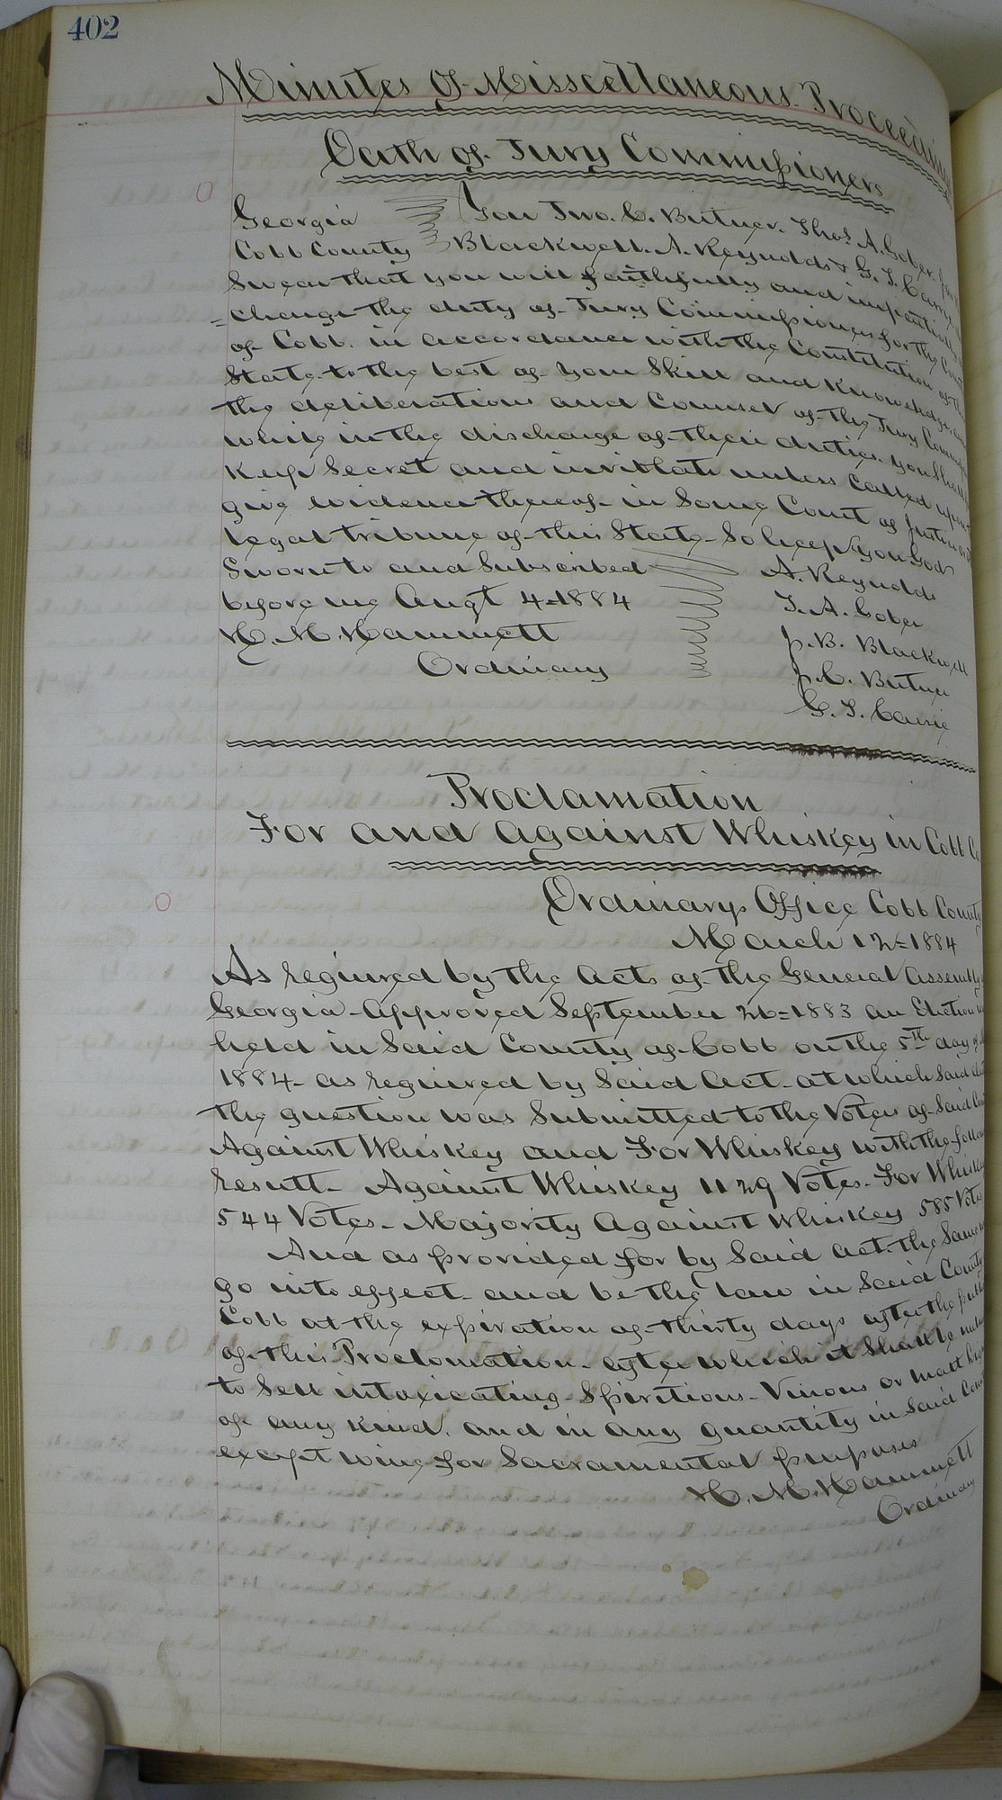 402
Minutes Of Misscellaneous Proceedings
Oath of Jury Commissioners
Georgia You Jno. C. Butner. Thos. A. Gober.
Cobb County Blackwell. A. Reynolds & G. T. Carrie
Swear that you will faithfully and impartially
=charge the duty of Jury Commissioners for the County
of Cobb. in accordance with the Constitution of the
State to the best of your Skill and Knowledge, and
the deliberations and Counsel of the Jury
while in the discharge of their duties you Shall
Keep Secret and inviolate unless Called upon
give evidence thereof in Some Court of Justice or
legal tribune of this State - So help you God
Sworn to and Subscribed A. Reynolds
before me Augt 4=1884 T. A. Gober
H. M. Hammett J. B. Blackwell
Ordinary J. C. Butner
G. T. Carrie
Proclamation
For and Against Whiskey in Cobb Co
Ordinarys Office Cobb County
March 12=1884
As required by the Acts of the General Assembly
Georgia - Approved September 26=1883 an Election
held in Said County of Cobb on the 5th day of
1884 - as required by Said Act - at which Said
the question was Submitted to the Voters of Said
Against Whiskey and For Whiskey with the
result - Against Whiskey 1129 Votes - For Whiskey
544 Votes - Majority Against Whiskey 585 Votes
And as provided for by Said Act. the Same
go into effect and be the law in Said County
Cobb at the expiration of thirty days after the
of this Proclamation - after which it Shall be
to Sell intoxicating - Spiritious - Vinous or malt
of any Kind. and in any quantity in Said
except wine for Sacramental purposes
H. M. Hammett
Ordinary